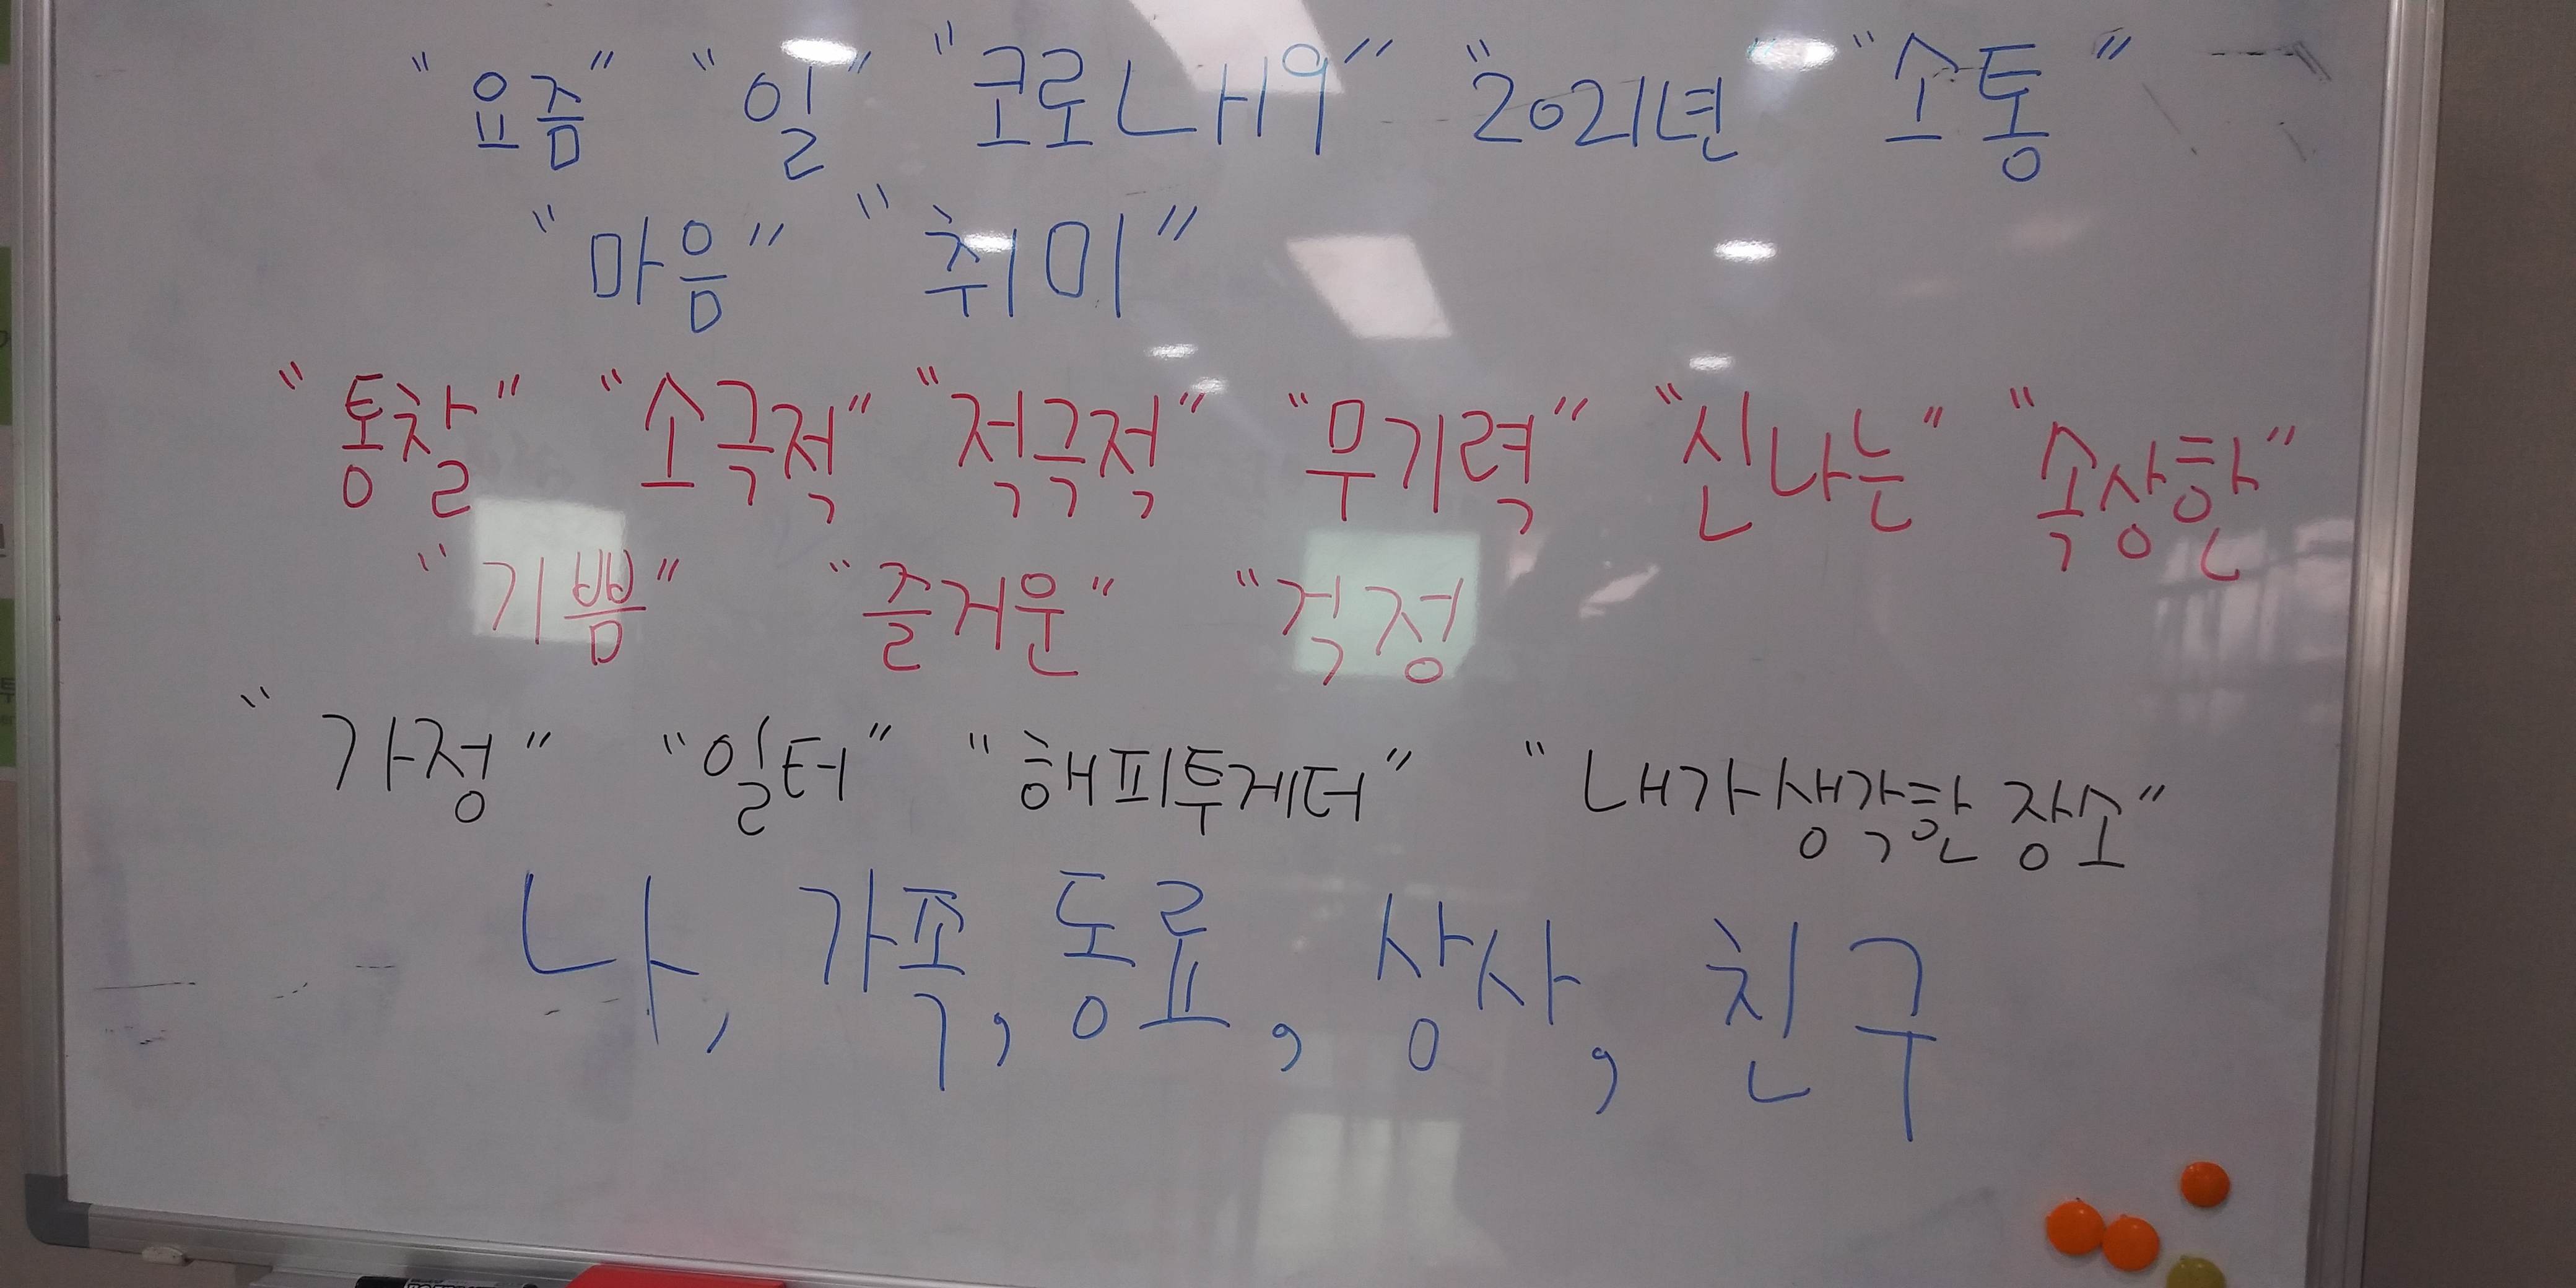 "요즘" "일" "코로나19" "2021년" "소통"
"마음" "취미"
"통찰" "소극적" "적극적" "무기력" "신나는" "속상한"
"기쁨" "즐거운" "걱정
"가정" "일터" "해피투게더" "내가생각한 장소"
나, 가족, 동료, 상사, 친구